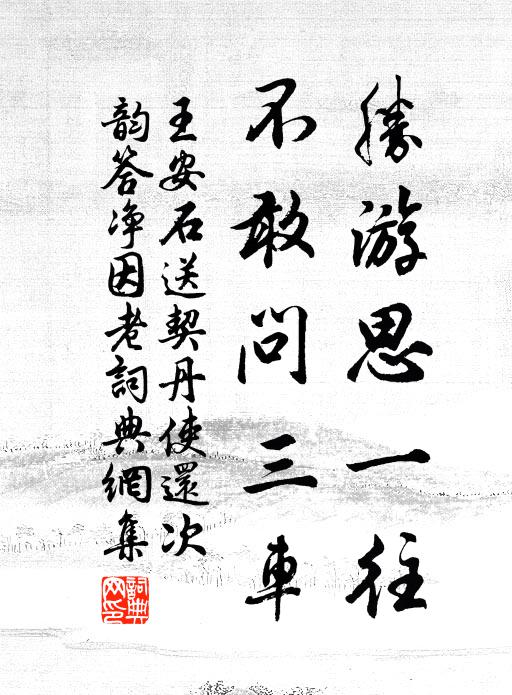 勝游思一往
不敢問三車
王安石送契丹使還次
韵答净因老詞典網集
詞典
网印